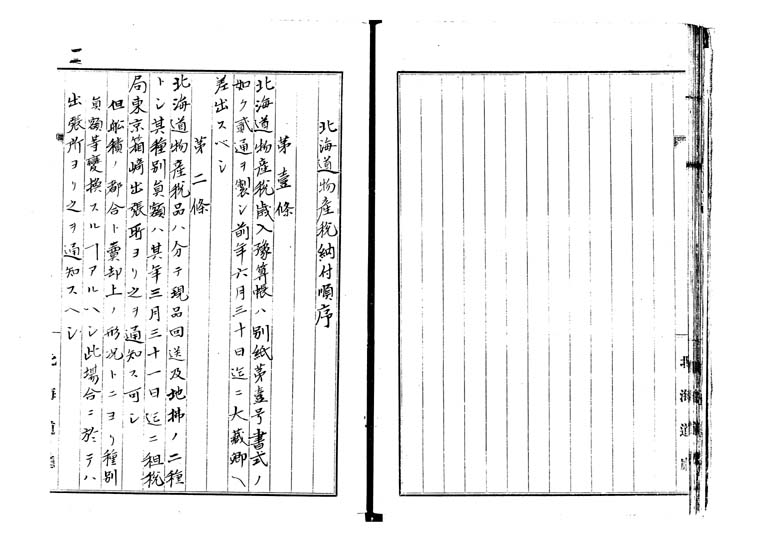 北海道物産税納付順序
第壹條
北海道物産税歳入豫算帳ハ別紙第壹号書式ノ
如ク貳通ヲ製シ前年六月三十日迄ニ大藏卿ヘ
差出スベシ
第二條
北海道物産税品ハ分テ現品回送及地拂ノ二種
トシ其種別員額ハ其年三月三十一日迄ニ租税
局東京箱崎出張所ヨリ之ヲ通知ス可シ
但舩積ノ都合ト賣却上ノ形況トニヨリ種別
員額等變換スルヿアルハシ此場合ニ於テハ
出張所ヨリ之ヲ通知スヘシ
二
北海道